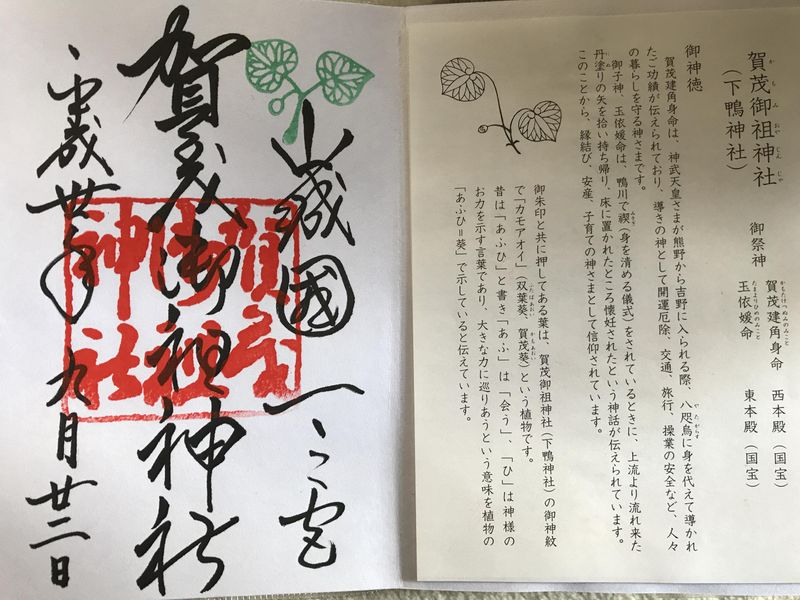 賀茂御祖神社
かもみおやじんじゃ
(下鴨神社)
御祭神
賀茂建角身命 西本殿(国宝)
かもたけつぬみのみこと
玉依媛命 東本殿(国宝)
たまよりひめのみこと
御神徳
賀茂建角身命は、神武天皇さまが熊野から吉野に入られる際、八咫烏に身を代えて導かれ
やたがらす
たご功績が伝えられており、導きの神として開運厄除、交通、旅行、操業の安全など、人々
の暮らしを守る神さまです。
御子神、玉依媛命は、鴨川で禊(身を清める儀式)をされているときに、上流より流れ来た
みそぎ
丹塗りの矢を拾い持ち帰り、床に置かれたところ懐妊されたという神話が伝えられています。
にぬ
このことから、縁結び、安産、子育ての神さまとして信仰されています。
御朱印と共に押してある葉は、賀茂御祖神社(下鴨神社)の御神紋
で「カモアオイ」(双葉葵、賀茂葵)という植物です。
ふたばあおい
かもあおい
昔は「あふひ」と書き「あふ」は「会う」、「ひ」は神様の
お力を示す言葉であり、大きな力に巡りあうという意味を植物の
「あふひ=葵」で示していると伝えています。
山城國一之宮
賀茂御祖神社
平成卅年九月廿二日
賀茂
御祖
神社